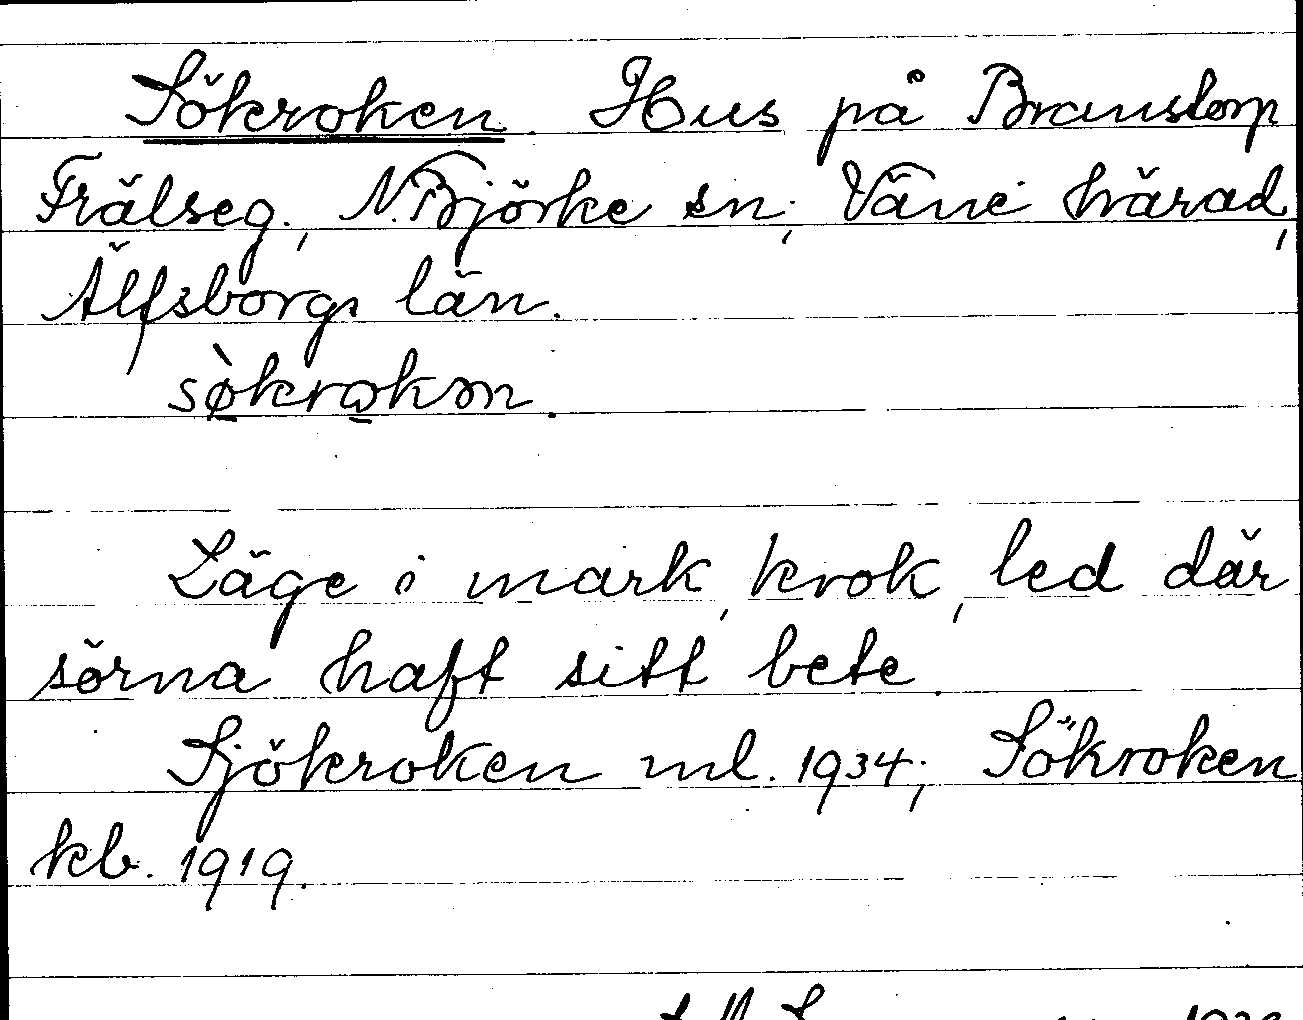 Sökroken. Hus på Branstorp
Frälseg., N. Björke sn, Väne härad,
Älfsborgs län.
sø̀krokən.
Läge i mark, krok, led där
sörna haft sitt bete.
Sjökroken ml. 1934; Sökroken
kb. 1919.